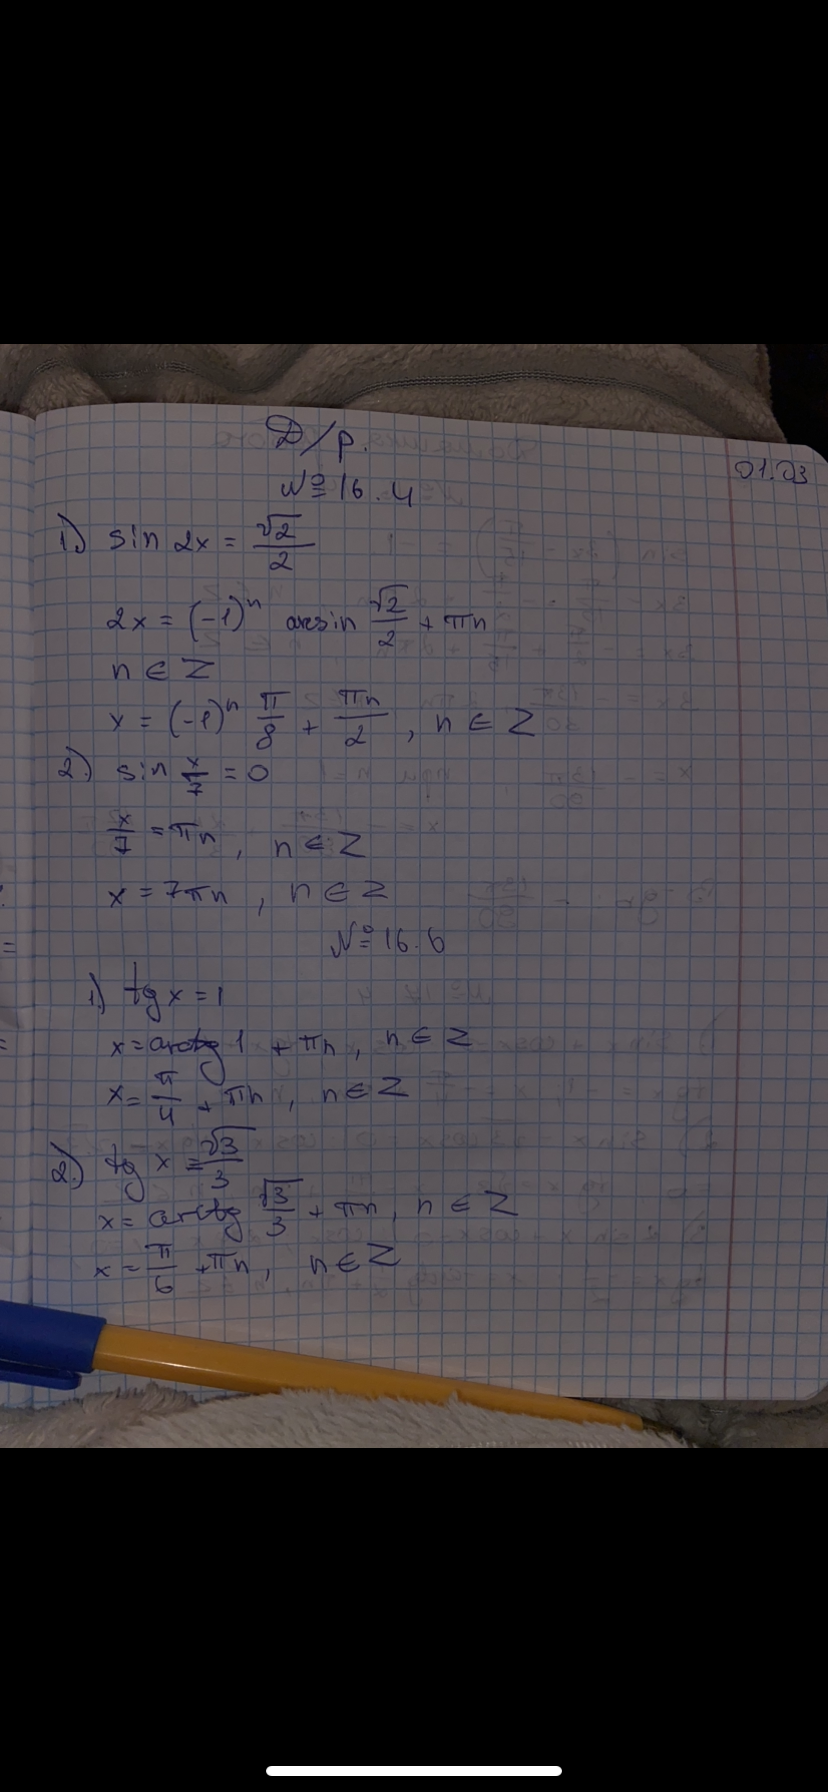 Д/р.
01.03
№ 16.4
1) sin 2x = √2/2
2x = (-1)ⁿ arcsin √2/2 + πn
n ∈ Z
x = (-1)ⁿ π/8 + πn/2, n ∈ Z
2.) sin x/7 = 0
x/7 = πn, n ∈ Z
x = 7πn, n ∈ Z
№ 16.6
1) tg x = 1
x = arctg 1 + πn, n ∈ Z
x = π/4 + πn, n ∈ Z
2.) tg x = √3/3
x = arctg √3/3 + πn, n ∈ Z
x = π/6 + πn, n ∈ Z